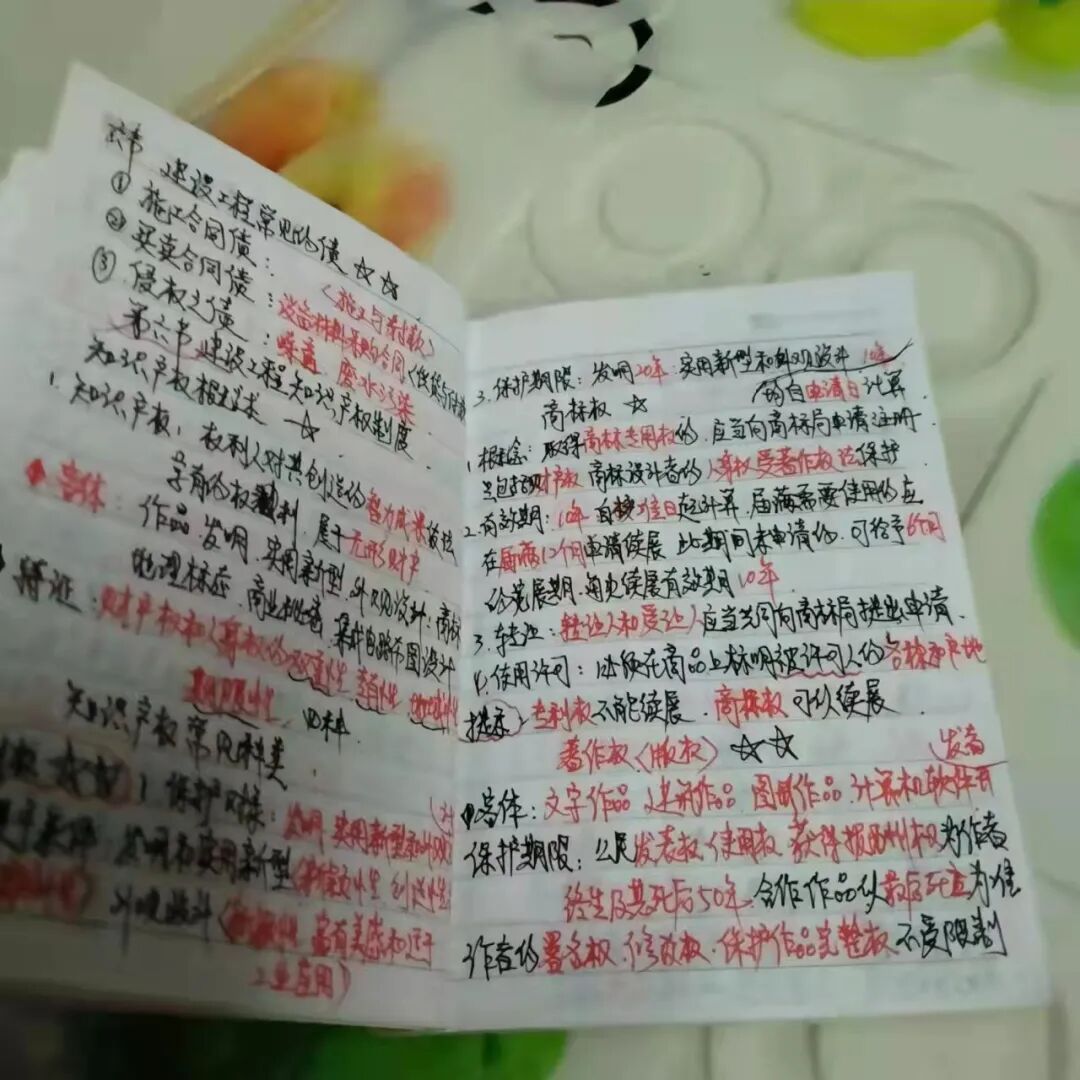 六节 建设工程常见的债 ☆☆
① 施工合同债：〈施工与付款〉
② 买卖合同债：设备材料采购合同〈供货与付款
③ 侵权之债：噪音 废水污染
第六节 建设工程知识产权制度
知识产权概述 ☆
1. 知识产权：权利人对其创造的智力成果依法
享有的权利 属于无形财产
客体：作品 发明 实用新型 外观设计；商标
地理标志 商业秘密 集成电路布图设计
特证：财产权和人身权的双重性 专有性 地域性
期限性
知识产权常见种类
☆☆ 1 保护对象：发明 实用新型和外观
发明和实用新型（新颖性 创造性
外观设计（新颖性 富有美感和适于
工业应用）
3. 保护期限：发明20年 实用新型和外观设计10年
均自申请日计算
商标权 ☆
1. 概念：取得商标专用权的，应当向商标局申请注册
只包括财产权 商标设计者的人身权受著作权法保护
2. 有效期：10年 自核准日起计算 届满需要使用的应
在届满12个月申请续展 此期间未申请的 可给予6个月
的宽展期 每次续展有效期10年
3. 转让：转让人和受让人应当共同向商标局提出申请
4. 使用许可：必须在商品上标明被许可人的名称和产地
提示：专利权不能续展 商标权可以续展
著作权〈版权〉☆☆
客体：文字作品 建筑作品 图形作品 计算机软件
保护期限：公民发表权 使用权 获得报酬权为作者
终生及其死后50年 合作作品以最后死亡为准
作者的署名权、修改权、保护作品完整权 不受限制